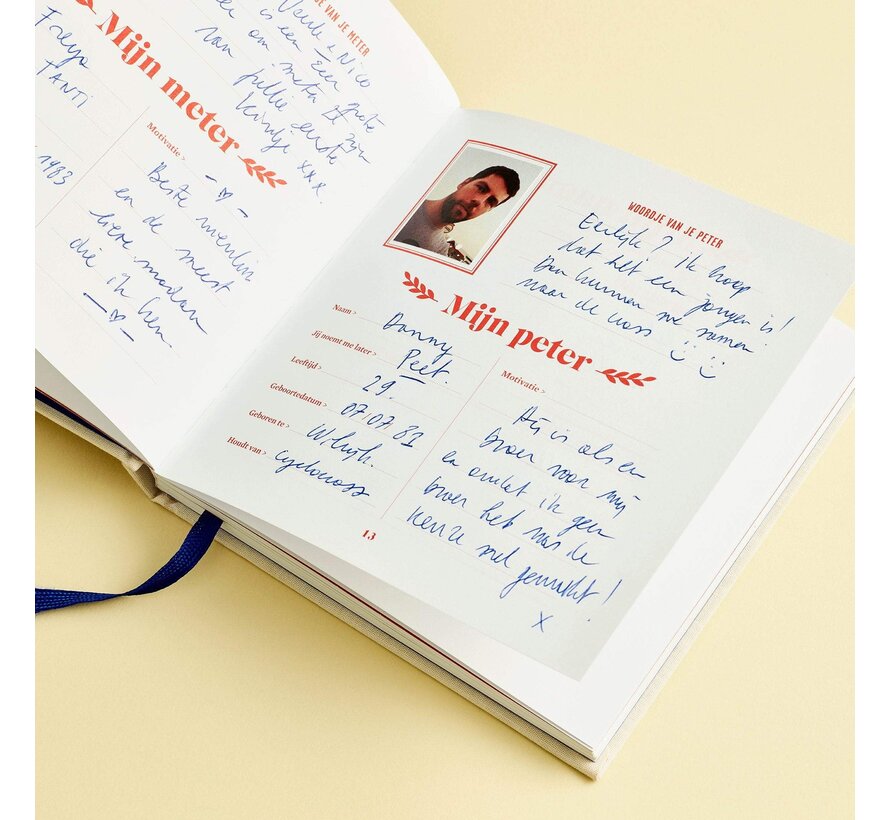 JE VAN JE METER
& Nico
is een Eer
om meter
van jullie eerste
kindje xxx
Mijn meter
Freya
TANTI
1983
Motivatie >
Beste vriendin
en de meest
lieve madam
die ik ken.
WOORDJE VAN JE PETER
Eerlijk? Ik hoop
dat het een jongen is!
Dan kunnen we samen
naar de cross
Mijn peter
Naam >
Danny
Jij noemt me later >
Peet.
Leeftijd >
29.
Geboortedatum >
07.07.81
Geboren te >
Wilrijk.
Houdt van >
Cyclocross
Motivatie >
Hij is als een
broer voor mij
en omdat ik geen
broer heb was de
keuze snel gemaakt!
x
13